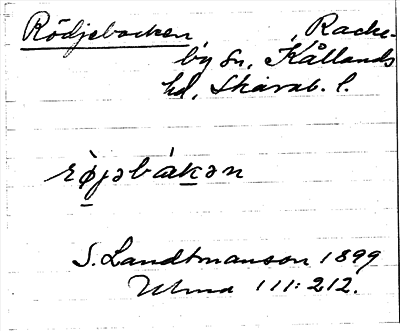 Rödjebacken, Racke-
by sn, Kållands
hd, Skarab. l.
rø̀jəbákən
S. Landtmanson 1899
Ulma 111:212.